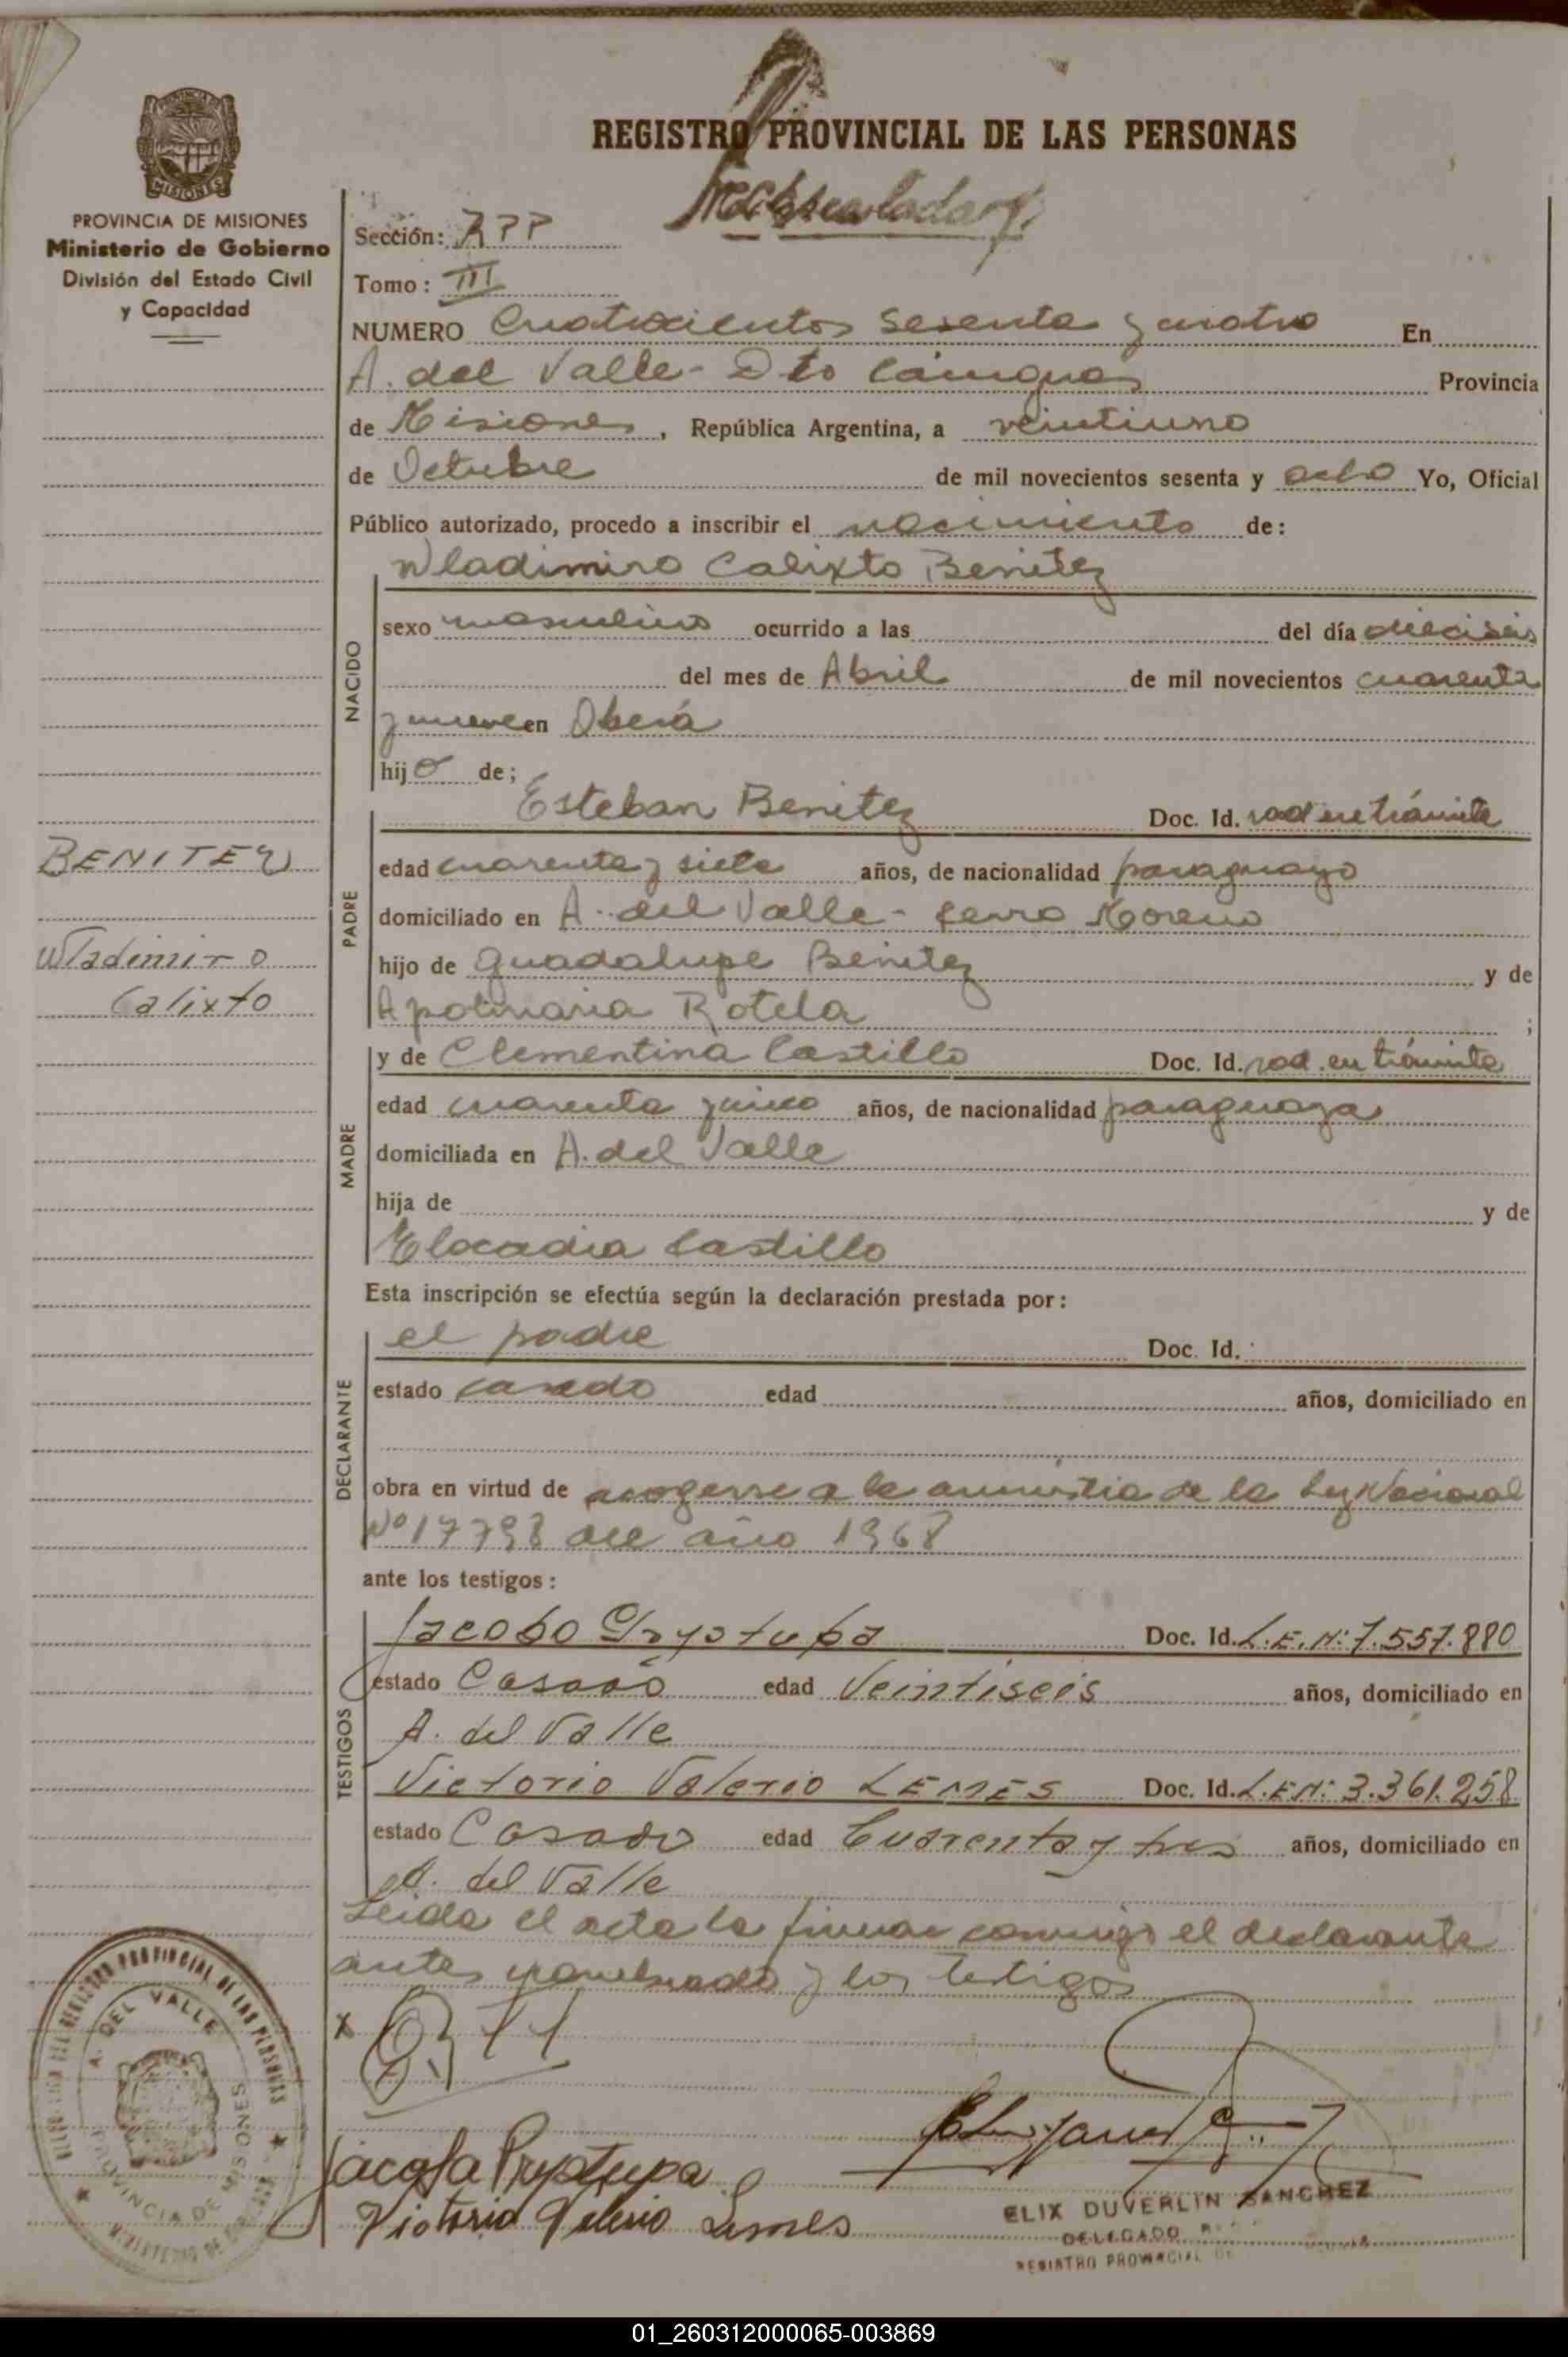 REGISTRO PROVINCIAL DE LAS PERSONAS
MISIONES
PROVINCIA DE MISIONES
Ministerio de Gobierno
División del Estado Civil
y Capacidad
Sección: RPP
Tomo: III
NUMERO Cuatrocientos sesenta y cuatro En
A. del Valle - Dto Cainguas Provincia
de Misiones, República Argentina, a veintiuno
de Octubre de mil novecientos sesenta y ocho Yo, Oficial
Público autorizado, procedo a inscribir el nacimiento de:
Wladimiro Calixto Benitez
NACIDO
sexo masculino ocurrido a las del día dieciseis
del mes de Abril de mil novecientos cuarenta
y nueve en Oberá
hijo de;
Esteban Benitez Doc. Id. rad en trámite
BENITEZ
PADRE
edad cuarenta y siete años, de nacionalidad paraguayo
domiciliado en A. del Valle - Cerro Moreno
Wladimiro
hijo de Guadalupe Benitez y de
Calixto
Apolinaria Rotela ;
y de Clementina Castillo Doc. Id. rad. en trámite
MADRE
edad cuarenta y cinco años, de nacionalidad paraguaya
domiciliada en A. del Valle
hija de y de
Elocadia Castillo
Esta inscripción se efectúa según la declaración prestada por:
el padre Doc. Id.
DECLARANTE
estado casado edad años, domiciliado en
obra en virtud de acogerse a la amnistia de la Ley Nacional
Nº 17798 del año 1968
ante los testigos:
Jacobo Doc. Id. L.E. N: 7.557.880
TESTIGOS
estado Casado edad Veintiseis años, domiciliado en
A. del Valle
Victorio Valerio LEMES Doc. Id. L.E N: 3.361.258
estado Casado edad Cuarenta y tres años, domiciliado en
A. del Valle
Leida el acta la firman conmigo el declarante
antes y los testigos
X
A. DEL VALLE
PROVINCIA DE MISIONES
Victorio Valerio Lemes
ELIX DUVERLIN SANCHEZ
DELEGADO
REGISTRO PROVINCIAL DE
01_260312000065-003869